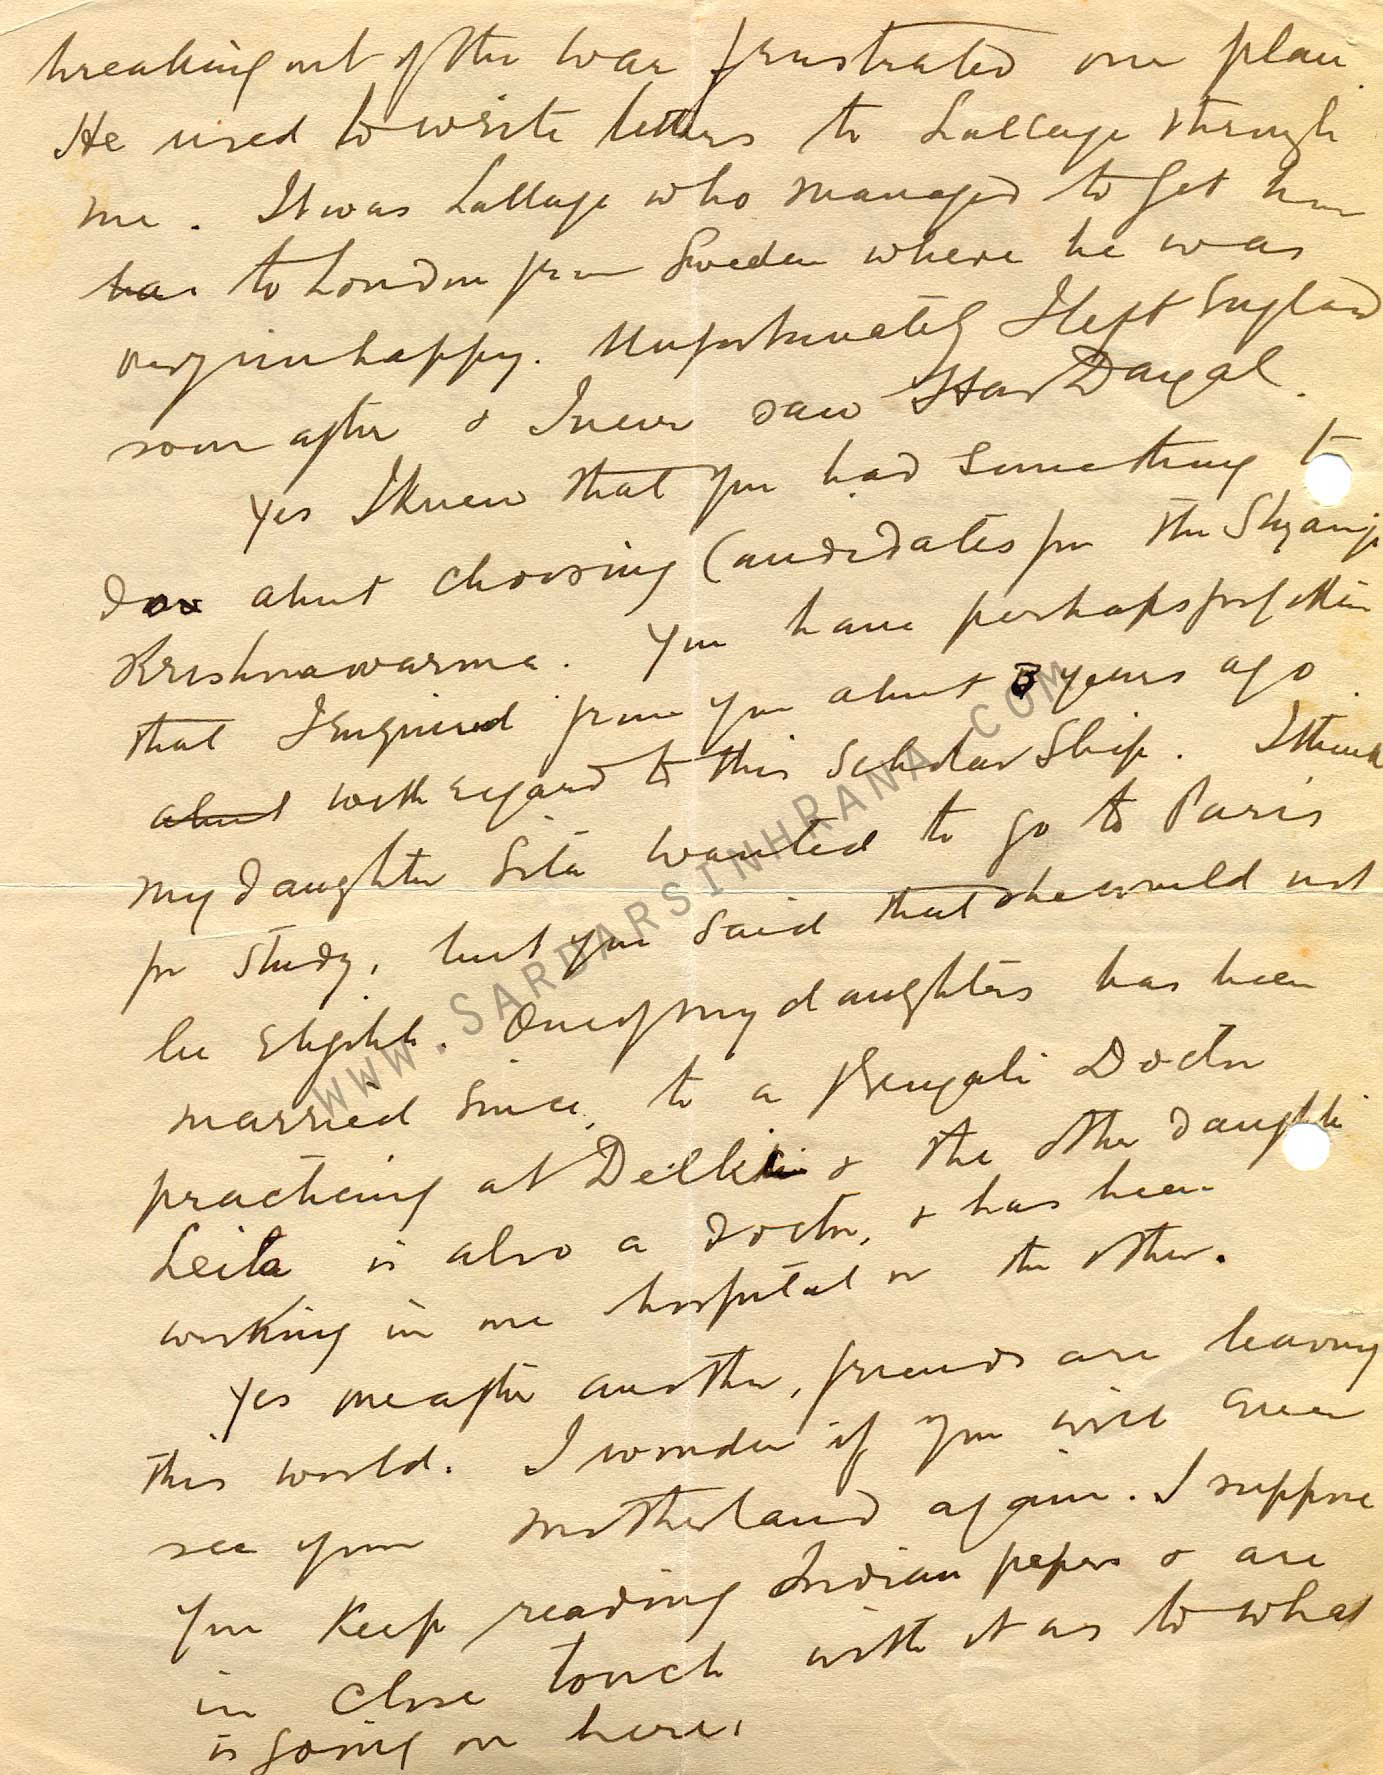 breaking out of the war frustrated our plan.
He used to write letters to Lallage through
me. It was Lallage who managed to get him
has to London from Sweden where he was
very unhappy. Unfortunately I left England
soon after & I never saw Har Dayal.
Yes I knew that you had something to
do about choosing Candidates for the Shyamji
Krishnawarma. You have perhaps forgotten
that I enquired from you about 3 years ago
about with regard to this Scholarship. I think
my daughter Sita wanted to go to Paris
for study, but you said that she would not
be eligible. One of my daughters has been
married since, to a Bengali Doctor
practicing at Delhi & the other daughter
Leila is also a doctor, & has been
working in one hospital or the other.
Yes one after another, friends are leaving
this world. I wonder if you will ever
see your motherland again. I suppose
you keep reading Indian papers & are
in close touch with it as to what
is going on here.
WWW.SARDARSINHRANA.COM